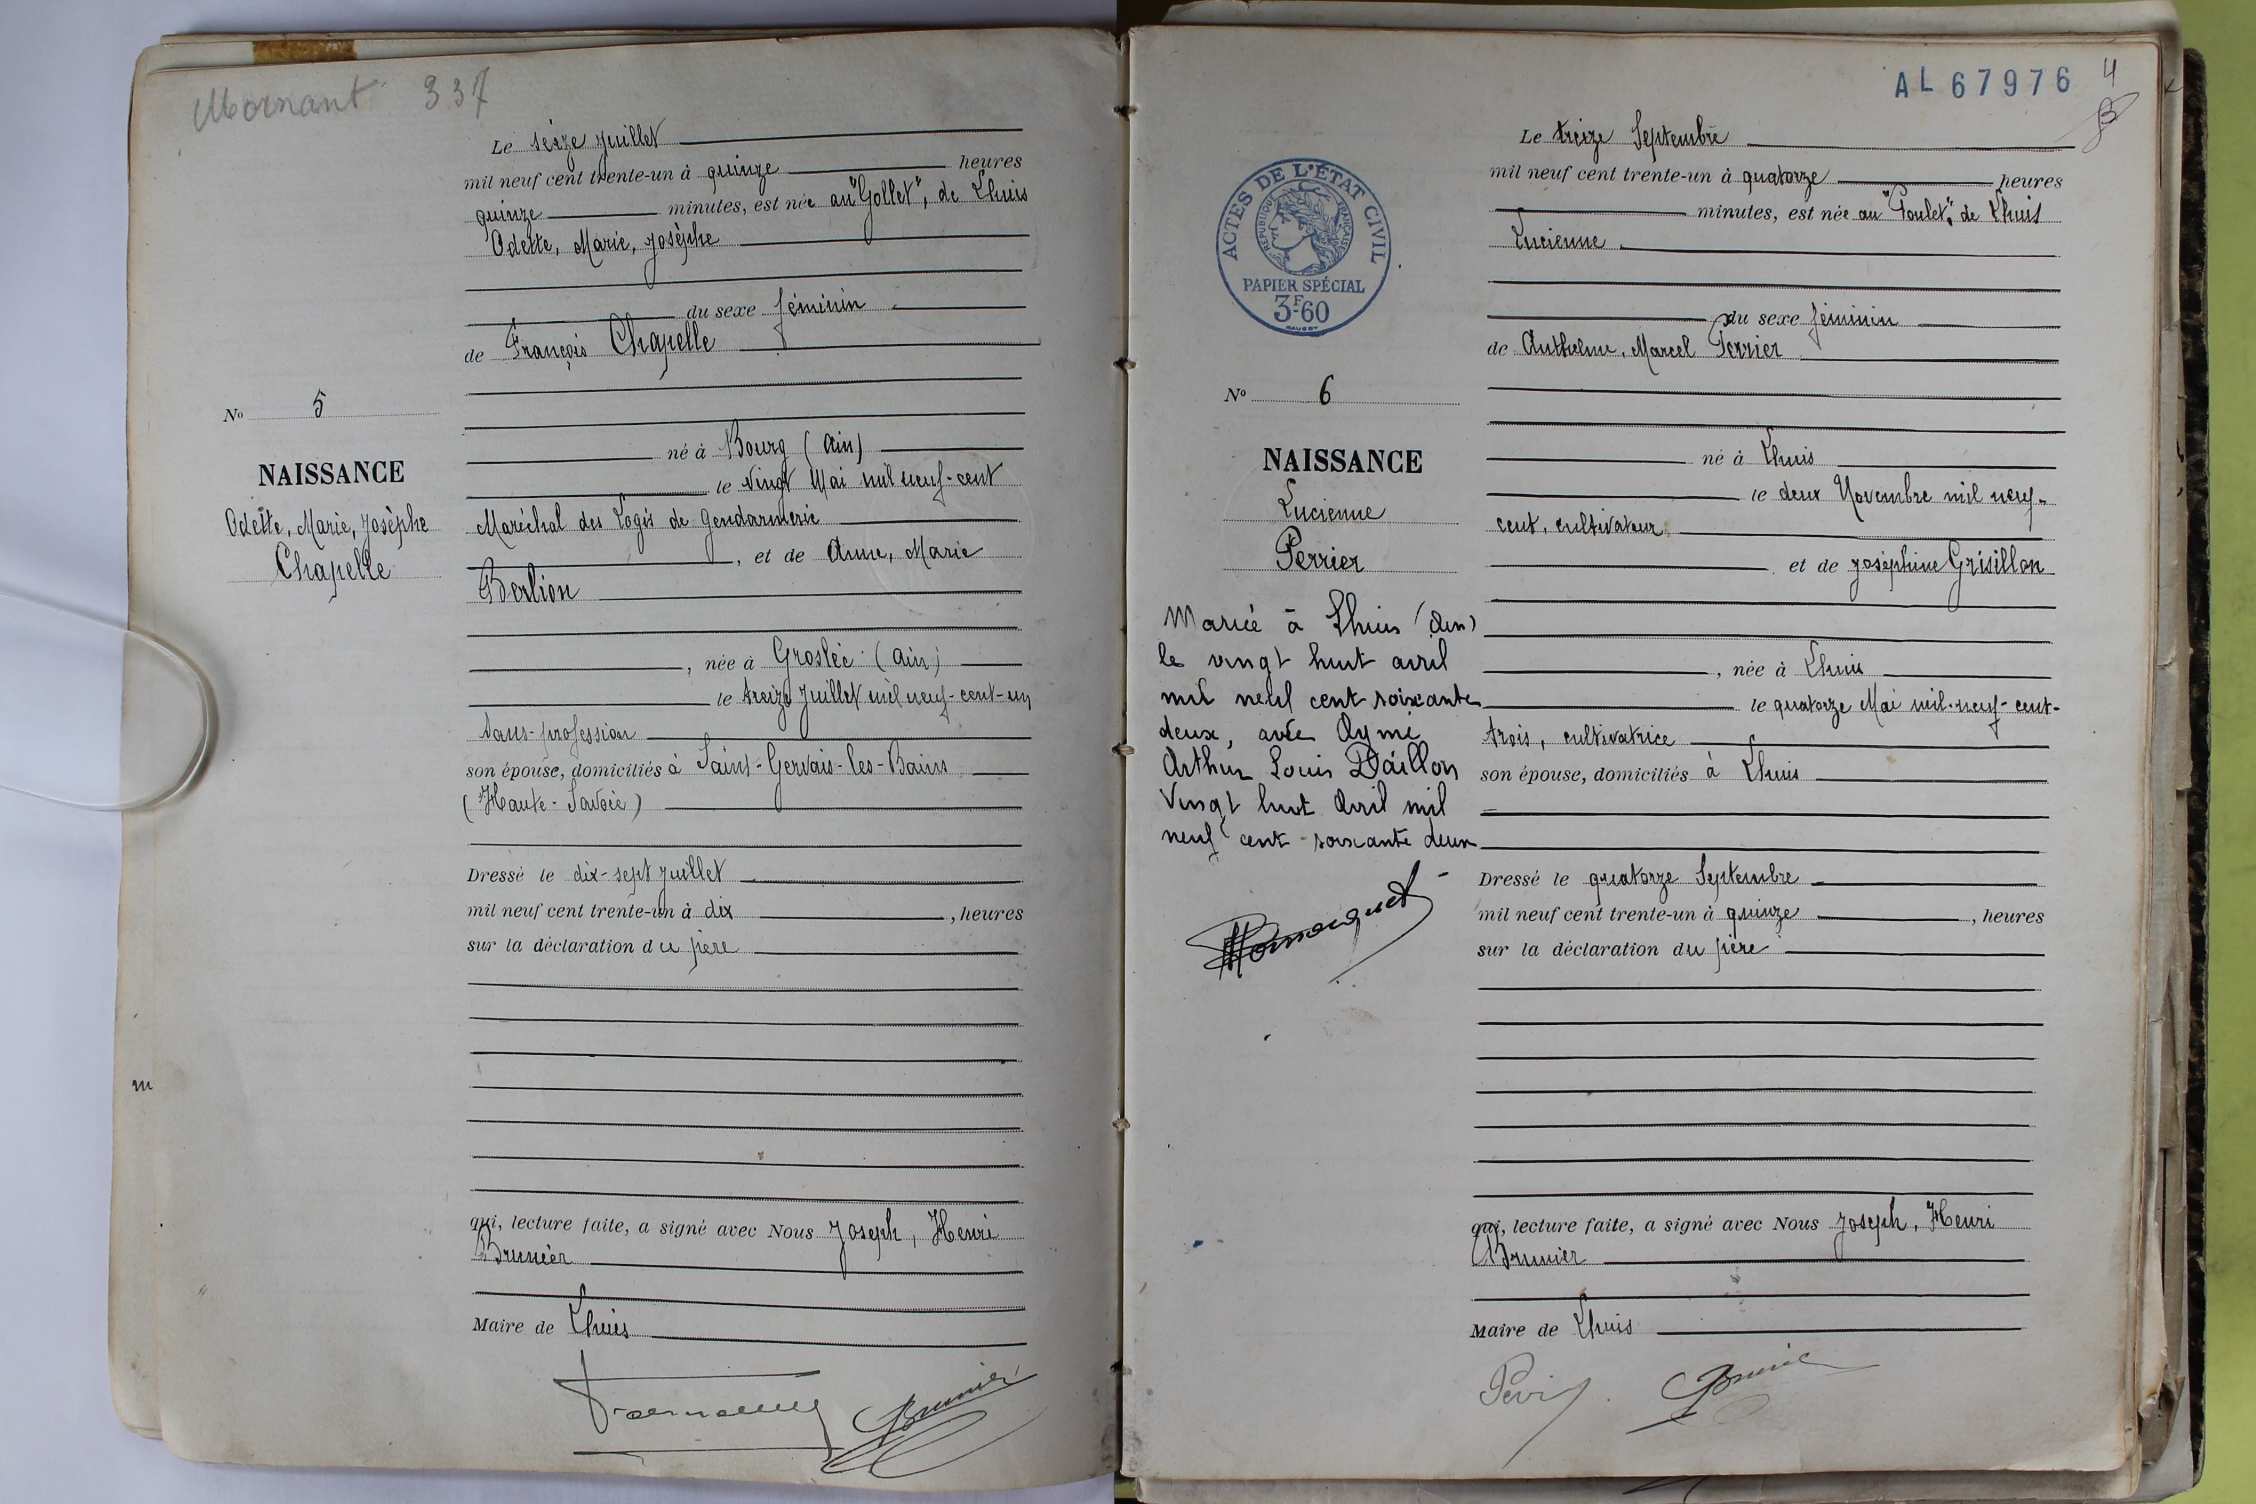 Mornant 337
Le seize juillet
mil neuf cent trente-un à quinze heures
quinze minutes, est née au "Gollet", de Lhuis
Odette, Marie, Josèphe
du sexe féminin
de François Chapelle
né à Bourg (Ain)
le vingt Mai mil neuf-cent
Maréchal des Logis de gendarmerie
, et de Anne, Marie
Berlion
, née à Groslée (Ain)
le treize juillet mil neuf-cent-un
sans-profession
son épouse, domiciliés à Saint-Gervais-les-Bains
(Haute-Savoie)
Dressé le dix-sept juillet
mil neuf cent trente-un à dix , heures
sur la déclaration du père
qui, lecture faite, a signé avec Nous Joseph, Henri
Brunier
Maire de Lhuis
Brunier
No 5
NAISSANCE
Odette, Marie, Josèphe
Chapelle
m
AL67976
4
Le treize Septembre
mil neuf cent trente-un à quatorze heures
minutes, est née au "Poulet", de Lhuis
Lucienne
du sexe féminin
de Anthelme, Marcel Perrier
né à Lhuis
le deux Novembre mil neuf-
cent, cultivateur
et de Joséphine Grisillon
, née à Lhuis
le quatorze Mai mil-neuf-cent-
trois, cultivatrice
son épouse, domiciliés à Lhuis
Dressé le quatorze Septembre
mil neuf cent trente-un à quinze , heures
sur la déclaration du père
qui, lecture faite, a signé avec Nous Joseph, Henri
Brunier
Maire de Lhuis
Brunier
ACTES DE L'ÉTAT CIVIL
RÉPUBLIQUE FRANÇAISE
PAPIER SPÉCIAL
3F60
No 6
NAISSANCE
Lucienne
Perrier
Mariée à Lhuis (Ain)
le vingt huit avril
mil neuf cent soixante
deux, avec Aymé
Arthur Louis Daillon
Vingt huit Avril mil
neuf cent soixante deux